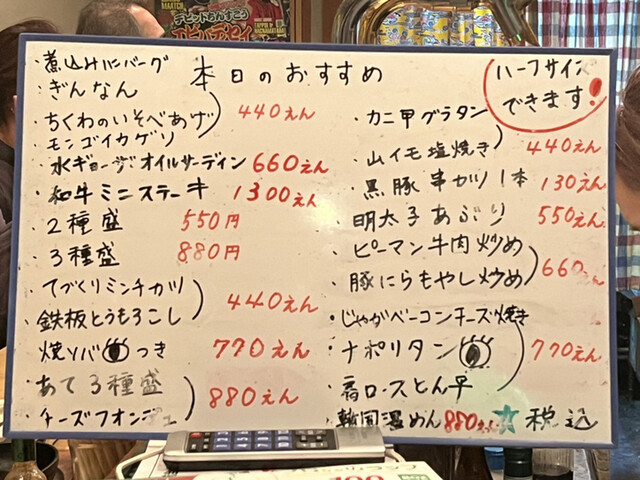 本日のおすすめ
ハーフサイズ
できます!
・煮込みハンバーグ
・ぎんなん
・ちくわのいそべあげ 440えん
・モンゴイカゲソ
・水ギョーザ・オイルサーディン 660えん
・和牛ミニステーキ 1300えん
・2種盛 550円
・3種盛 880円
・てづくりミンチカツ
・鉄板とうもろこし 440えん
・焼ソバつき 770えん
・あて3種盛
・チーズフォンデュ 880えん
・カニ甲グラタン
・山イモ塩焼き 440えん
・黒豚串カツ1本 130えん
・明太子あぶり 550えん
・ピーマン牛肉炒め
・豚にらもやし炒め 660えん
・じゃがベーコンチーズ焼き
・ナポリタン 770えん
・肩ロースとん平
・韓国温めん 880えん ☆税込